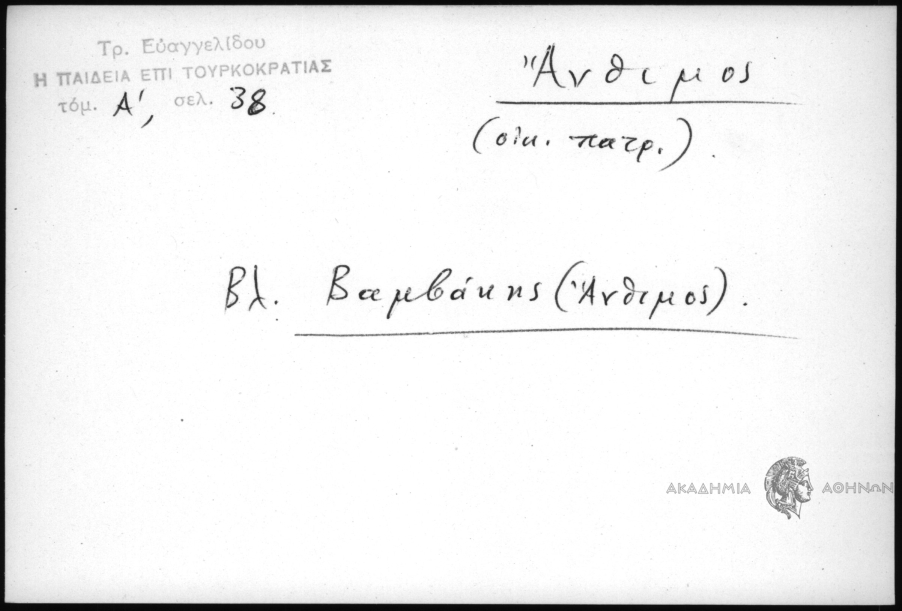 Τρ. Εὐαγγελίδου
Η ΠΑΙΔΕΙΑ ΕΠΙ ΤΟΥΡΚΟΚΡΑΤΙΑΣ
τόμ. Α', σελ. 38
Ἄνθιμος
(οἰκ. πατρ.).
Βλ. Βαμβάκης (Ἄνθιμος).
ΑΚΑΔΗΜΙΑ ΑΘΗΝΩΝ